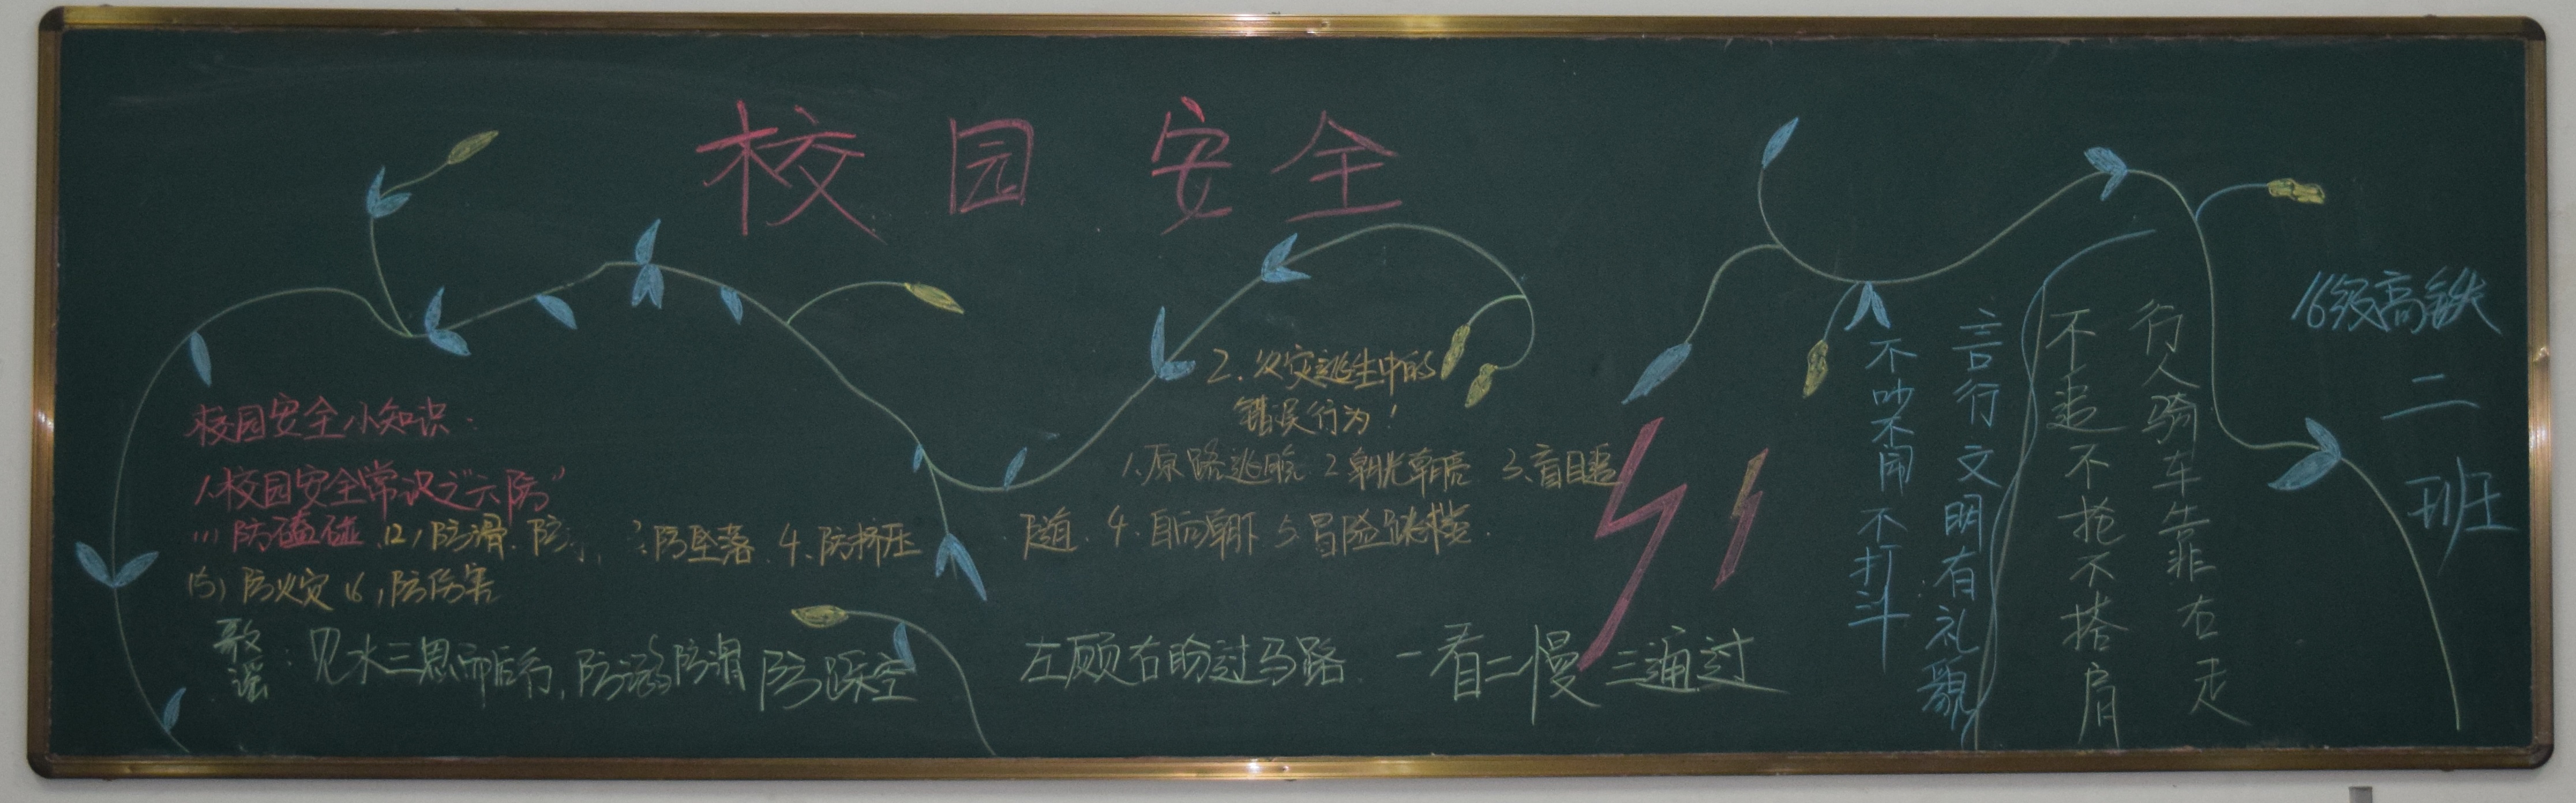 校园安全
校园安全小知识:
1.校园安全常识之"六防"
(1)防磕碰 (2)防滑、防 3.防坠落 4.防挤压
(5)防火灾 (6)防伤害
歌谣:见水三思而后行,防溺防滑防踩空
2.火灾逃生中的
错误行为!
1.原路逃脱 2.朝光朝亮 3.盲目追
随 4.自高朝下 5.冒险跳楼.
左顾右盼过马路 一看二慢三通过
行人骑车靠右走
不追不抢不搭肩
言行文明有礼貌
不吵不闹不打斗
16级高铁
二
班